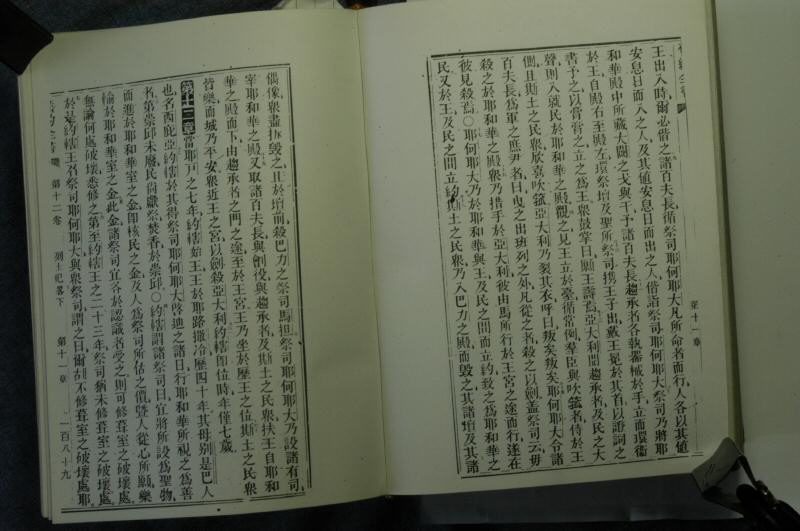 第十一章
王出入時爾必偕之諸百夫長循祭司耶何耶大凡所命者而行人各以其値
安息日而入之人及其値安息日而出之人偕詣祭司耶何耶大祭司乃將耶
和華殿中所藏大闢之戈與干予諸百夫長趨承者各執器械於手立而環衞
於王自殿右至殿左環祭壇及聖所祭司携王子出戴王冕於其首以證詞之
書予之以膏膏之立之爲王衆鼓掌曰願王壽焉亞大利聞趨承者及民之大
聲則入就民於耶和華之殿觀之見王立於臺循常例羣臣與吹號者侍於王
側且斯土之民衆欣喜吹號亞大利乃裂其衣呼曰叛矣叛矣耶何耶大令諸
百夫長爲軍之庶尹者曰曳之出班列之外凡從之者殺之以劍蓋祭司云毋
殺之於耶和華之殿衆乃措手於亞大利彼由馬所行於王宮之途而行遂在
彼見殺焉○耶何耶大乃於耶和華與王及民之間而立約致之爲耶和華之
民又於王及民之間立約斯土之民衆乃入巴力之殿而毁之其諸壇及其諸
偶像衆盡拆毁之且於壇前殺巴力之祭司馬担祭司耶何耶大乃設諸有司
宰耶和華之殿又取諸百夫長與劊役與趨承者及斯土之民衆扶王自耶和
華之殿而下由趨承者之門之途至於王宮王乃坐於歷王之位斯土之民衆
皆樂而城乃平安衆近王之宮以劍殺亞大利約轄卽位時年僅七歲
第十二章當耶戸之七年約轄始王王於耶路撒冷歷四十年其母别是巴人
也名西庇亞約轄於其得祭司耶何耶大啓迪之諸日行耶和華所視之爲善
者第崇邱未廢民尙獻祭焚香於崇邱○約轄謂諸祭司曰宜將所設爲聖物
而進於耶和華室之金卽核民之金及人爲祭司所估之價曁人從心所願樂
輸於耶和華室之金此金諸祭司宜各於認識者受之則可修葺室之破壞處
無論何處破壞悉修之第至約轄王之二十三年祭司猶未修葺室之破壞處
於是約轄王召祭司耶何耶大與衆祭司謂之曰爾曷不修葺室之破壞處耶
第十二卷 列王紀畧下 第十一章 一百八十九